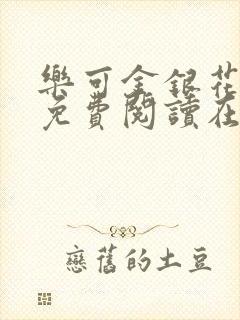 樂可金銀花
免費閱讀在
戀舊的土豆